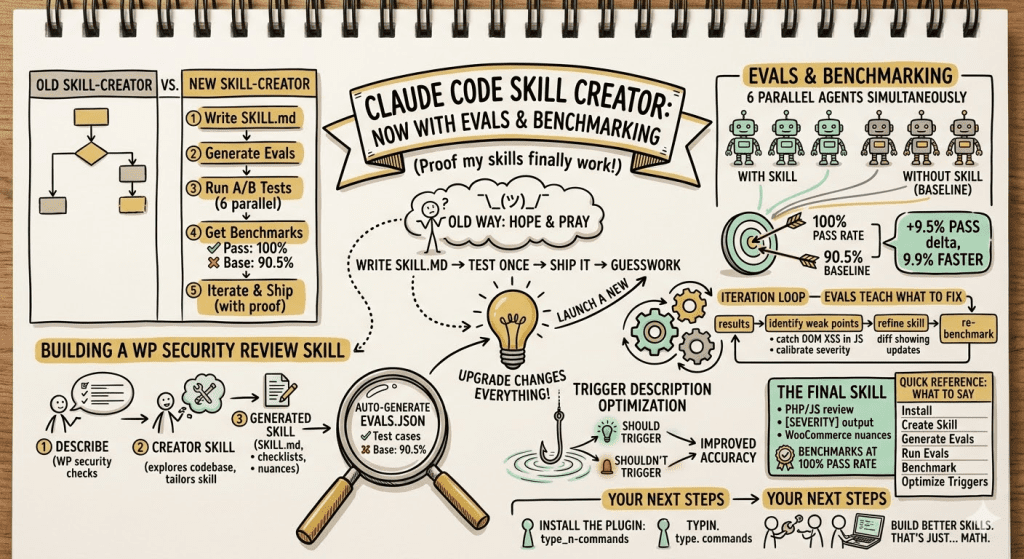 CLAUDE CODE SKILL CREATOR:
NOW WITH EVALS & BENCHMARKING
(Proof my skills finally work!)
OLD SKILL-CREATOR
VS.
NEW SKILL-CREATOR
1 Write SKILL.md
2 Generate Evals
3 Run A/B Tests
(6 parallel)
4 Get Benchmarks
✓ Pass: 100%
✗ Base: 90.5%
5 Iterate & Ship
(with proof)
¯\_(ツ)_/¯
?
OLD WAY: HOPE & PRAY
WRITE SKILL.MD → TEST ONCE → SHIP IT → GUESSWORK
LAUNCH A NEW
UPGRADE CHANGES
EVERYTHING!
EVALS & BENCHMARKING
6 PARALLEL AGENTS SIMULTANEOUSLY
WITH SKILL
WITHOUT SKILL
(BASELINE)
100%
PASS RATE
90.5%
BASELINE
+9.5% PASS
delta,
9.9% FASTER
ITERATION LOOP — EVALS TEACH WHAT TO FIX
results
identify weak points
• catch DOM XSS in JS
• calibrate severity
refine skill
diff showing
updates
re-
benchmark
BUILDING A WP SECURITY REVIEW SKILL
1 DESCRIBE
(WP security
checks
2 CREATOR SKILL
(explores codebase,
tailors skill)
3 GENERATED
SKILL
(SKILL.md,
• checklists,
• nuances)
AUTO-GENERATE
EVALS.JSON
✓ Test cases
✗ Base: 90.5%
TRIGGER DESCRIPTION
OPTIMIZATION
SHOULD
TRIGGER
SHOULDN'T
TRIGGER
IMPROVED
ACCURACY
THE FINAL SKILL
• PHP/JS review
• [SEVERITY] output
• WooCommerce nuances
BENCHMARKS AT
100% PASS RATE
QUICK REFERENCE:
WHAT TO SAY
Install
Create Skill
Generate Evals
Run Evals
Benchmark
Optimize Triggers
YOUR NEXT STEPS → YOUR NEXT STEPS
INSTALL THE PLUGIN:
type_n-commands
TYPIN.
type. commands
BUILD BETTER SKILLS.
THAT'S JUST... MATH.